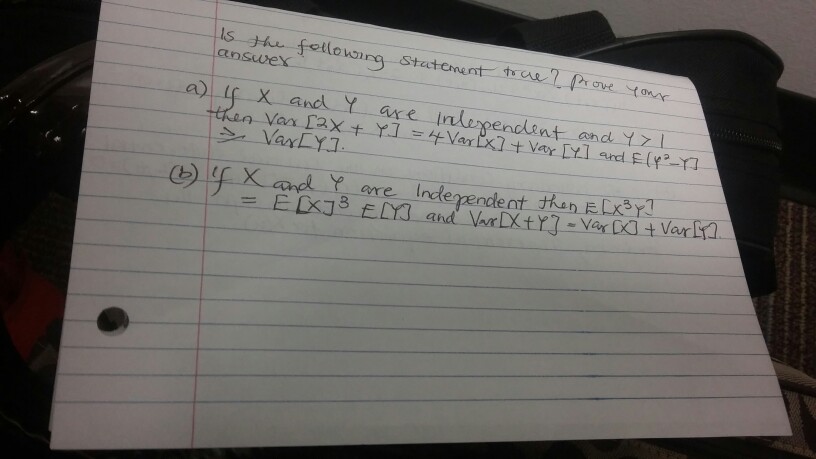 Is the following statement true? Prove your
answer
a) If X and Y are independent and Y > 1
then Var [2X + Y] = 4 Var[X] + Var [Y] and E(Y²-Y]
≥ Var[Y].
(b) If X and Y are Independent then E[X³Y]
= E[X]³ E[Y] and Var[X+Y] = Var[X] + Var[Y].